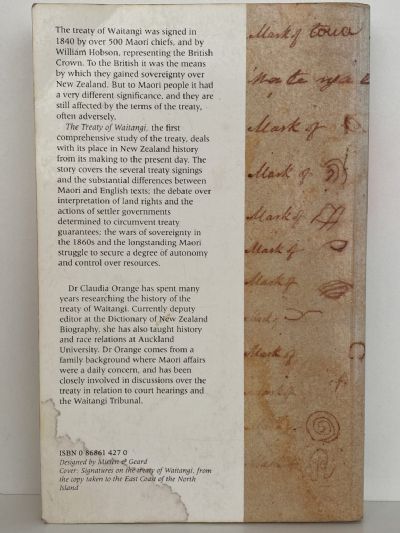 The treaty of Waitangi was signed in
1840 by over 500 Maori chiefs, and by
William Hobson, representing the British
Crown. To the British it was the means
by which they gained sovereignty over
New Zealand. But to Maori people it had
a very different significance, and they are
still affected by the terms of the treaty,
often adversely.
The Treaty of Waitangi, the first
comprehensive study of the treaty, deals
with its place in New Zealand history
from its making to the present day. The
story covers the several treaty signings
and the substantial differences between
Maori and English texts; the debate over
interpretation of land rights and the
actions of settler governments
determined to circumvent treaty
guarantees; the wars of sovereignty in
the 1860s and the longstanding Maori
struggle to secure a degree of autonomy
and control over resources.
Dr Claudia Orange has spent many
years researching the history of the
treaty of Waitangi. Currently deputy
editor at the Dictionary of New Zealand
Biography, she has also taught history
and race relations at Auckland
University. Dr Orange comes from a
family background where Maori affairs
were a daily concern, and has been
closely involved in discussions over the
treaty in relation to court hearings and
the Waitangi Tribunal.
ISBN 0 86861 427 0
Designed by & Geard
Cover: Signatures on the treaty of Waitangi, from
the copy taken to the East Coast of the North
Island
Mark of
Mark of
Mark of
Mark of
Mark of
Mark of
Mark of